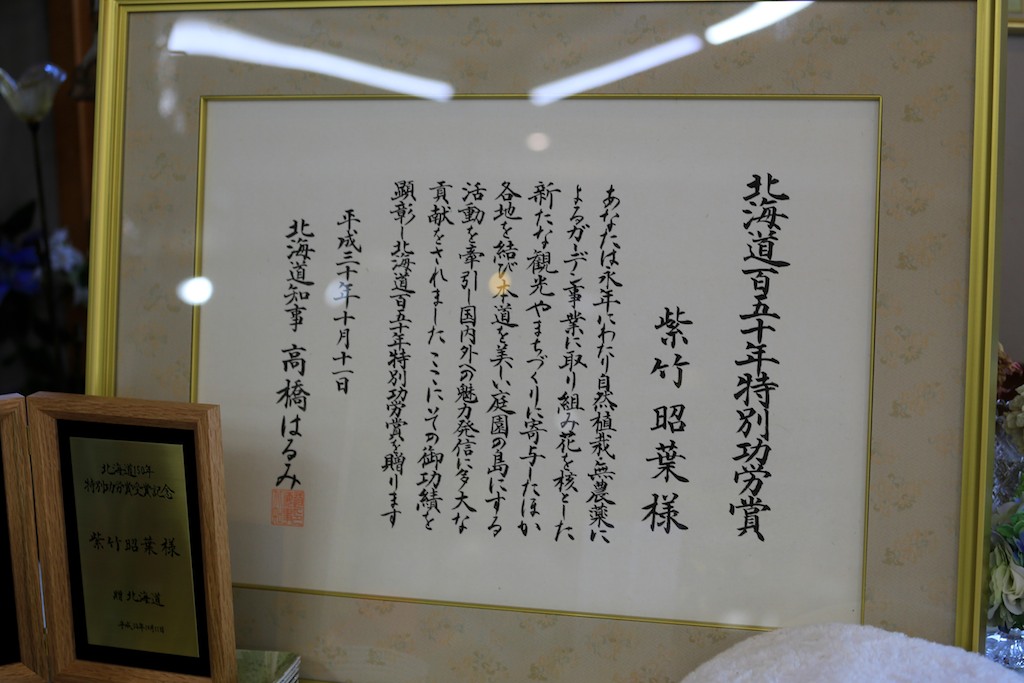 北海道百五十年特別功労賞
紫竹昭葉様
あなたは永年にわたり自然植栽・無農薬に
よるガーデン事業に取り組み花を核とした
新たな観光やまちづくりに寄与したほか
各地を結び本道を美しい庭園の島にする
活動を牽引し国内外への魅力発信に多大な
貢献をされましたここにその御功績を
顕彰し北海道百五十年特別功労賞を贈ります
平成三十年十月十一日
北海道知事 高橋はるみ
北海道150年
特別功労賞受賞記念
紫竹昭葉様
贈 北海道